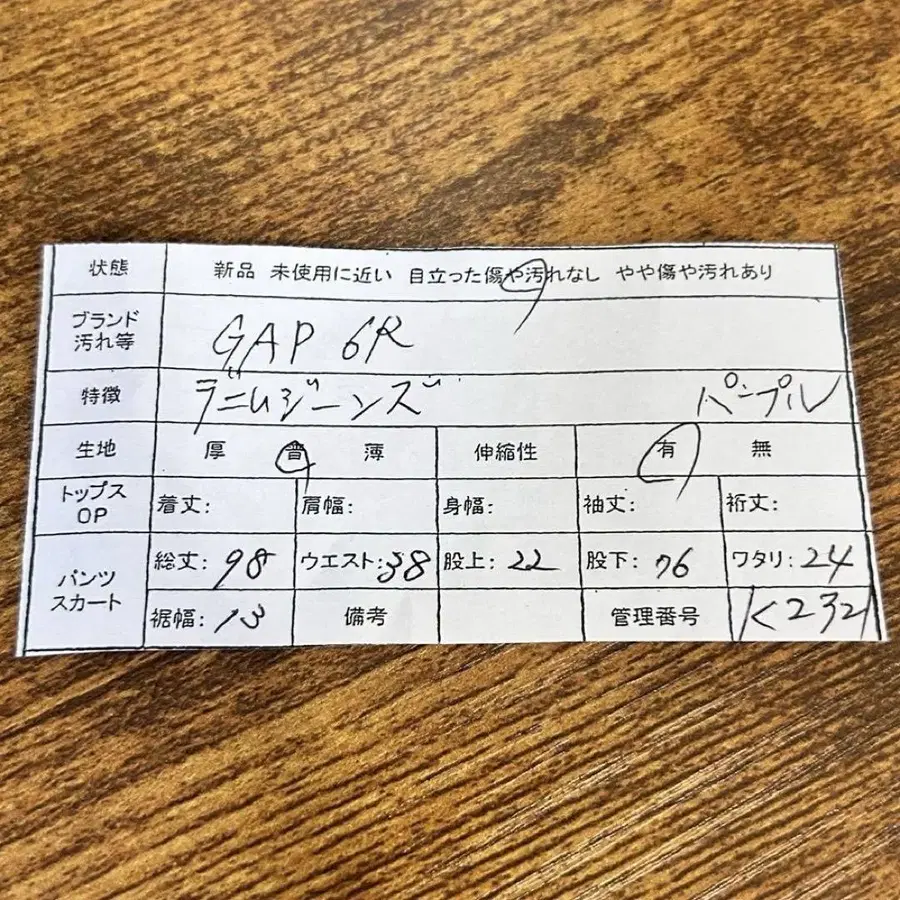 状態 新品 未使用に近い 目立った傷や汚れなし やや傷や汚れあり
ブランド
汚れ等 GAP 6R
特徴 デニムジーンズ パープル
生地 厚 普 薄 伸縮性 有 無
トップス
OP 着丈: 肩幅: 身幅: 袖丈: 裄丈:
パンツ
スカート 総丈: 98 ウエスト: 38 股上: 22 股下: 76 ワタリ: 24
裾幅: 13 備考 管理番号 K2321